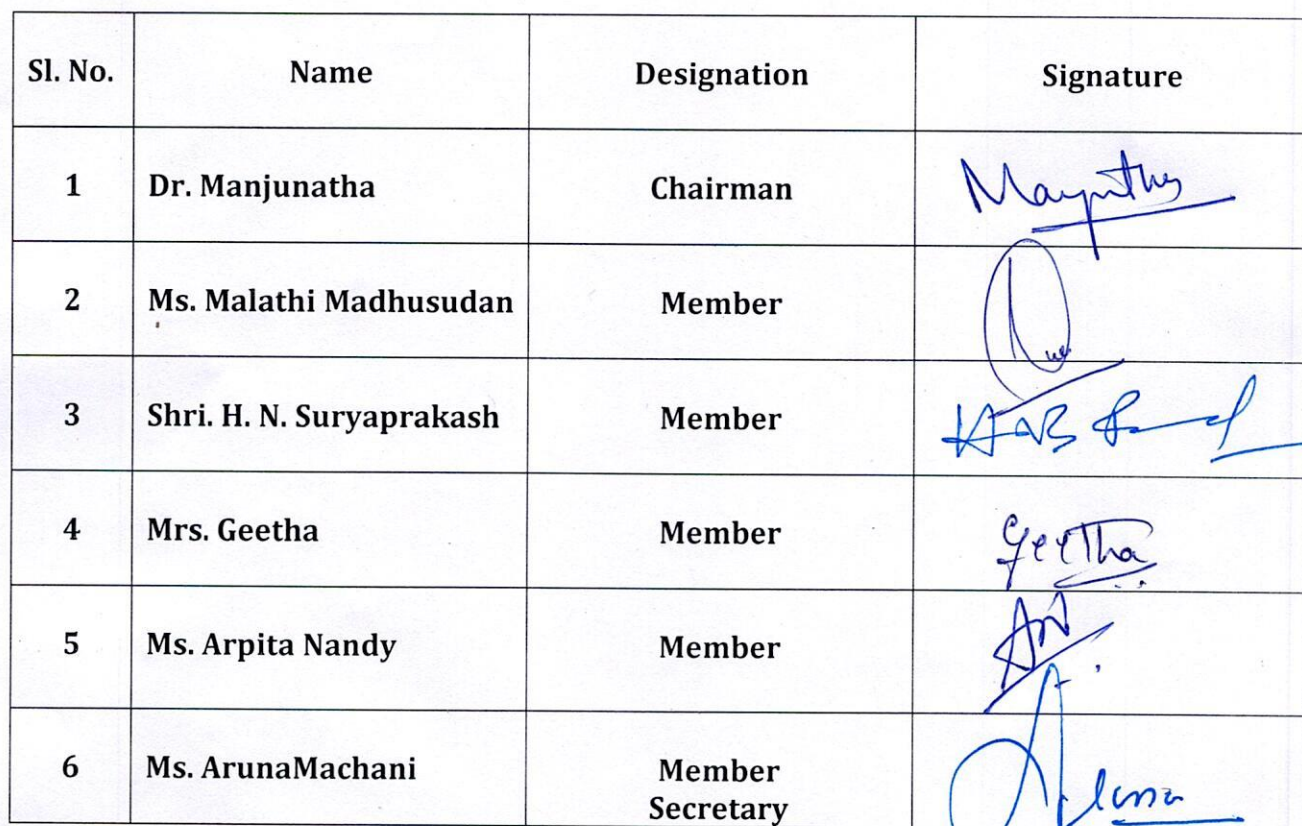 Sl. No. Name Designation Signature
1 Dr. Manjunatha Chairman
2 Ms. Malathi Madhusudan Member
3 Shri. H. N. Suryaprakash Member
4 Mrs. Geetha Member Geetha
5 Ms. Arpita Nandy Member
6 Ms. ArunaMachani Member
Secretary